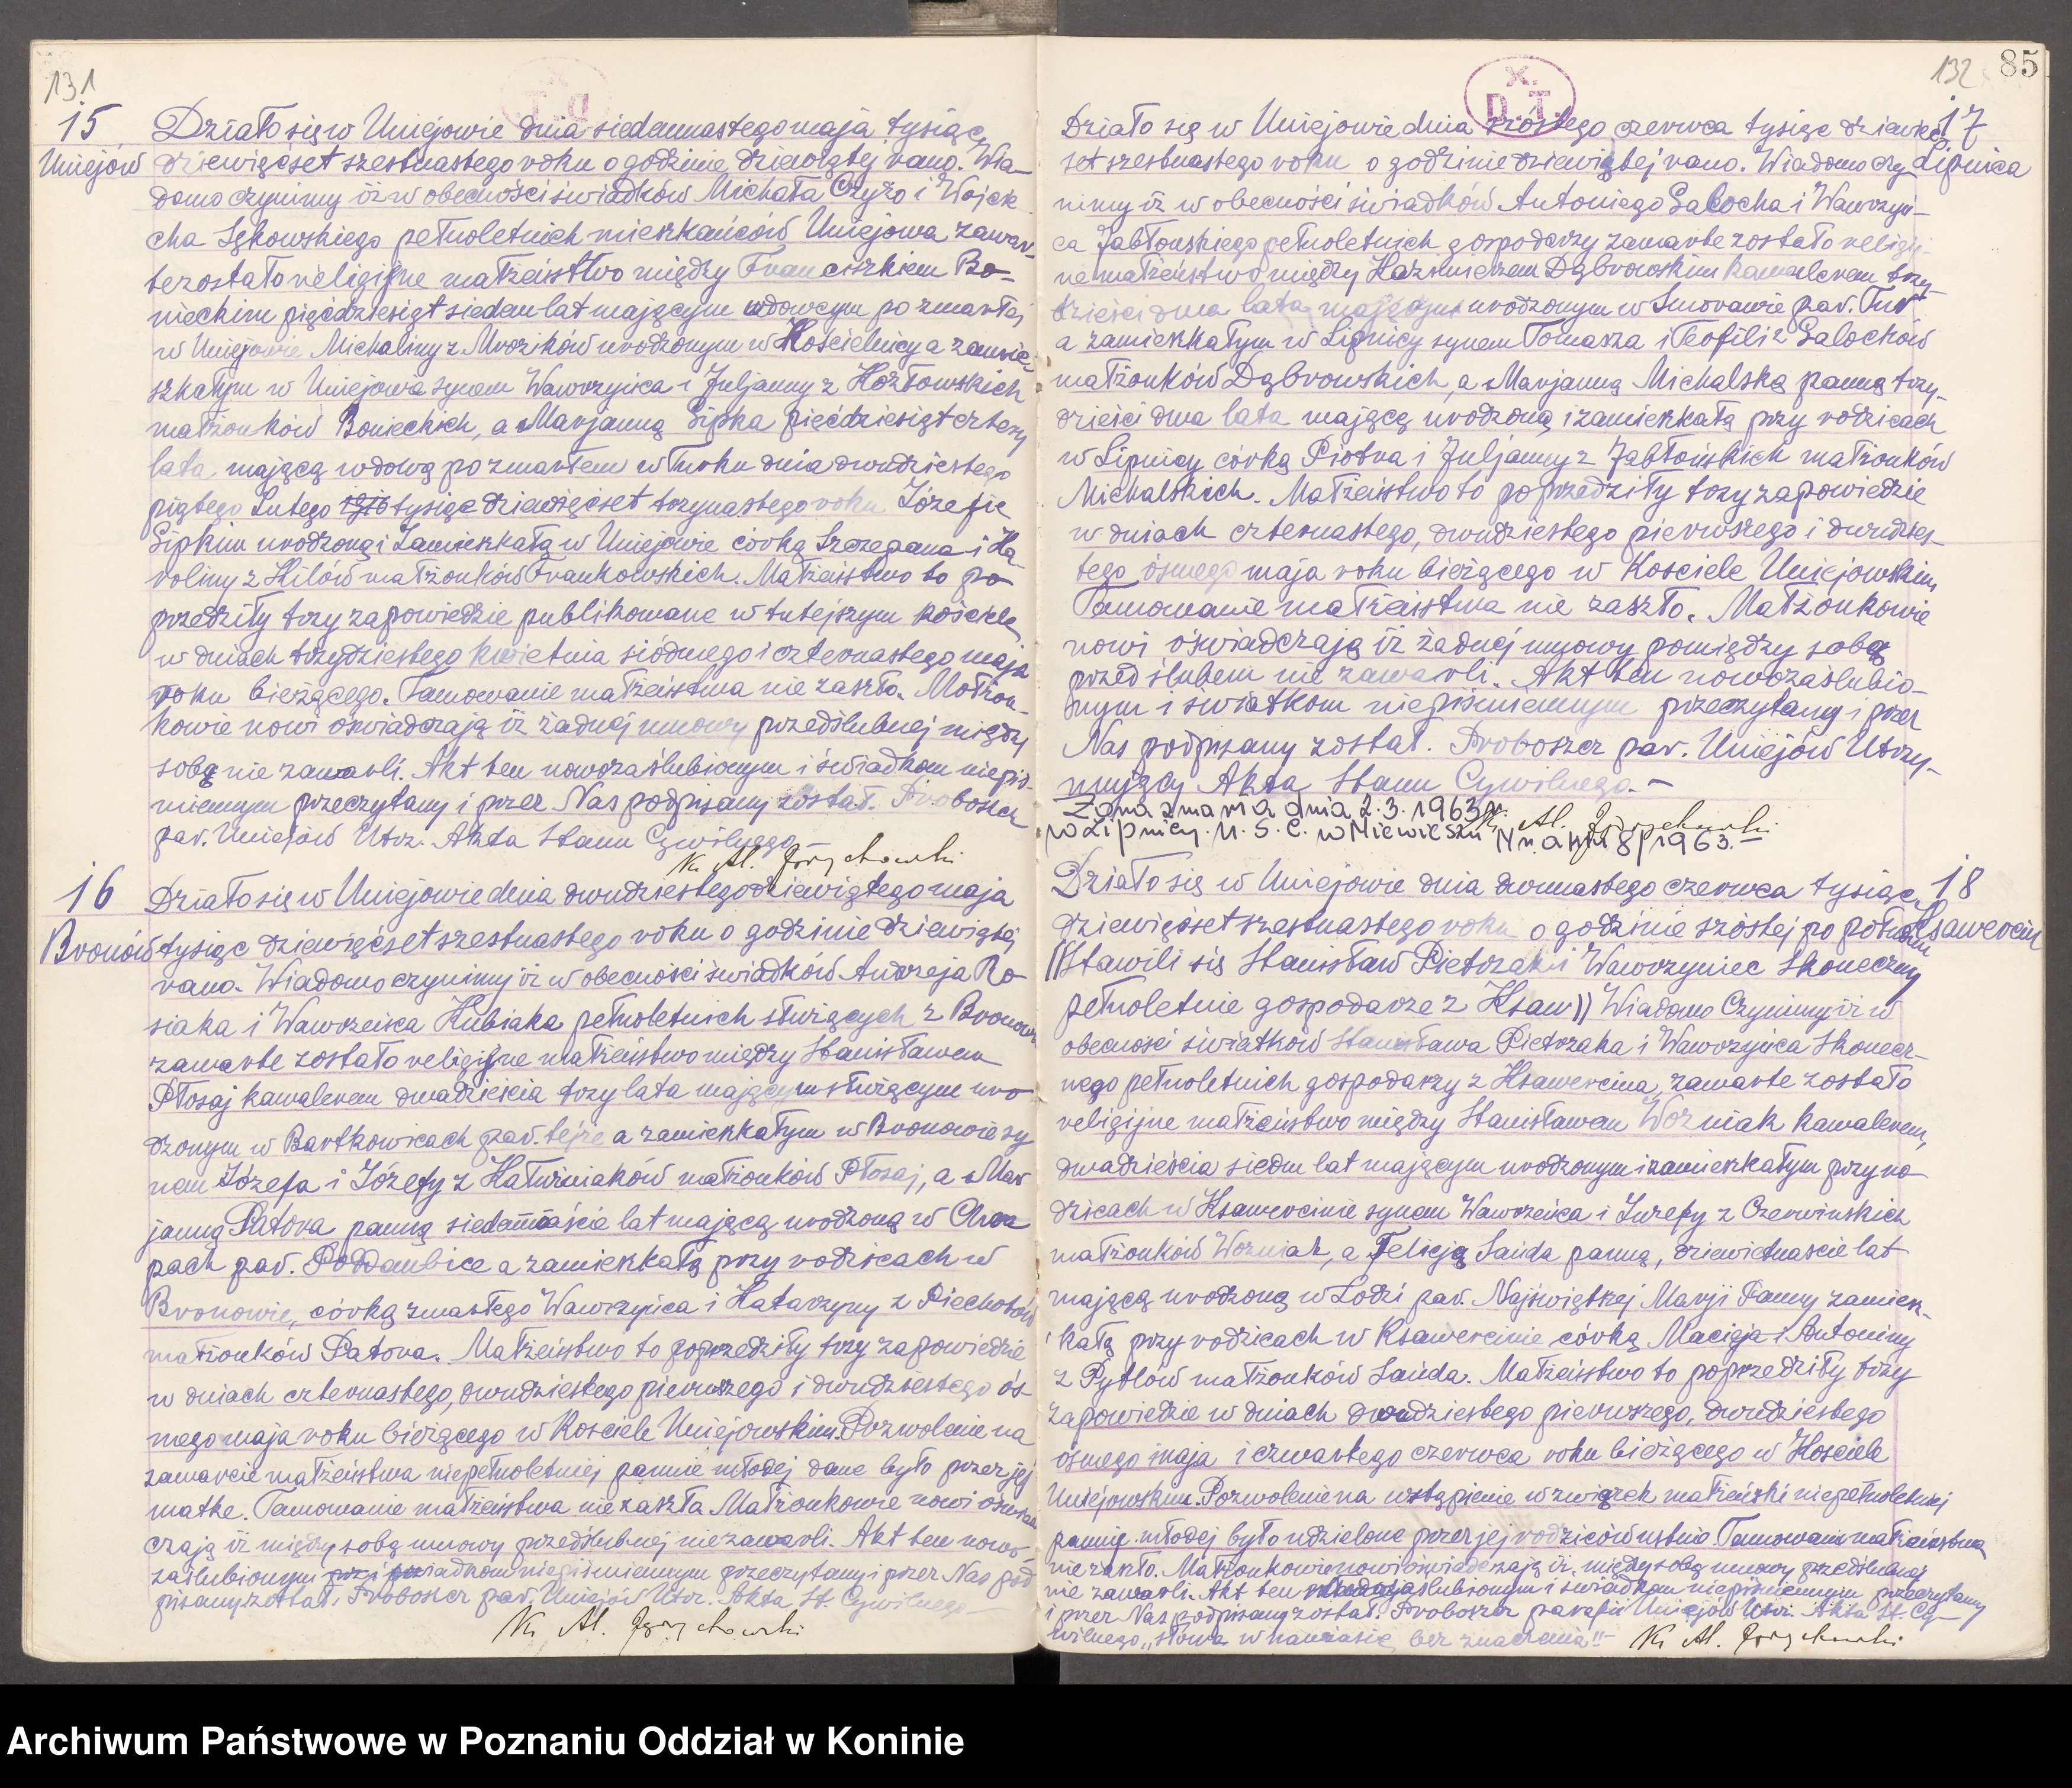 131
15
Uniejów
Działo się w Uniejowie dnia siedemnastego maja tysiąc
dziewięćset szesnastego roku o godzinie dziewiątej rano. Wia-
domo czynimy iż w obecności świadków Michała Czyżo i Wojcie-
cha Sękowskiego pełnoletnich mieszkańców Uniejowa zawar-
te zostało religijne małżeństwo między Franciszkiem Bo-
nieckim pięćdziesiąt siedem lat mającym wdowcem po zmarłej
w Uniejowie Michaliny z Mrozików urodzonym w Kościelnicy a zamie-
szkałym w Uniejowie synem Wawrzyńca i Juljanny z Kozłowskich
małżonków Bonieckich, a Marjanną Sipka pięćdziesiąt cztery
lata mającą wdową po zmarłem w Turku dnia dwudziestego
piątego Lutego tysiąc dziewięćset trzynastego roku Józefie
Sipkim urodzoną i zamieszkałą w Uniejowie córką Szczepana i Ka-
roliny z Kilów małżonków Frankowskich. Małżeństwo to po-
przedziły trzy zapowiedzie publikowane w tutejszym kościele
w dniach trzydziestego kwietnia siódmego i czternastego maja
roku bieżącego. Tamowanie małżeństwa nie zaszło. Małżon-
kowie nowi oświadczają iż żadnej umowy przedślubnej między
sobą nie zawarli. Akt ten nowozaślubionym i świadkom niepiś-
miennym przeczytany i przez Nas podpisany został. Proboszcz
par. Uniejów Utrz. Akta Stanu Cywilnego –
Ks Al.
16
Bronów
Działo się w Uniejowie dnia dwudziestego dziewiątego maja
tysiąc dziewięćset szesnastego roku o godzinie dziewiątej
rano. Wiadomo czynimy iż w obecności świadków Andrzeja Ro-
siaka i Wawrzeńca Kubiaka pełnoletnich służących z Bronowa
zawarte zostało religijne małżeństwo między Stanisławem
Płosaj kawalerem dwadzieścia trzy lata mającym służącym uro-
dzonym w Bartkowicach par. tejże a zamieszkałym w Bronowie sy-
nem Józefa i Józefy z Kaźmiaków małżonków Płosaj, a Mar-
janną Patora panną siedemnaście lat mającą urodzoną w
pach par. Poddembice a zamieszkałą przy rodzicach w
Bronowie, córką zmarłego Wawrzyńca i Katarzyny z Piechotów
małżonków Patora. Małżeństwo to poprzedziły trzy zapowiedzie
w dniach czternastego, dwudziestego pierwszego i dwudziestego ós-
mego maja roku bieżącego w Kościele Uniejowskim. Pozwolenie na
zawarcie małżeństwa niepełnoletniej pannie młodej dane było przez jej
matkę. Tamowanie małżeństwa nie zaszła Małżonkowie nowi oświad-
czają iż między sobą umowy przedślubnej nie zawarli. Akt ten nowo-
zaślubionym i świadkom niepiśmiennym przeczytany i przez Nas pod-
pisany został. Proboszcz par. Uniejów Utrz. Akta St. Cywilnego –
Ks Al.
X.
D.T.
132
85
17
Lipnica
Działo się w Uniejowie dnia szóstego czerwca tysiąc dziewięć-
set szesnastego roku o godzinie dziewiątej rano. Wiadomo czy-
nimy iż w obecności świadków Antoniego Galocha i Wawrzyń-
ca Jabłońskiego pełnoletnich gospodarzy zawarte zostało religij-
ne małżeństwo między Kazimierzem Dąbrowskim kawalerem trzy-
dzieści dwa lata mającym urodzonym w Smorawie par. Tur
a zamieszkałym w Lipnicy synem Tomasza i Teofili z Galochów
małżonków Dąbrowskich, a Marjanną Michalską panną trzy-
dzieści dwa lata mającą urodzoną i zamieszkałą przy rodzicach
w Lipnicy córką Piotra i Juljanny z Jabłońskich małżonków
Michalskich. Małżeństwo to poprzedziły trzy zapowiedzie
w dniach czternastego, dwudziestego pierwszego i dwudzies-
tego ósmego maja roku bieżącego w Kościele Uniejowskim
Tamowanie małżeństwa nie zaszło. Małżonkowie
nowi oświadczają iż żadnej umowy pomiędzy sobą
przed ślubem nie zawarli. Akt ten nowozaślubio-
nym i świadkom niepiśmiennym przeczytany i przez
Nas podpisany został. Proboszcz par. Uniejów Utrzy-
mujący Akta Stanu Cywilnego. –
Żona zmarła dnia 2.3.1963 r.
w Lipnicy. U.S.C. w Niewieszu Nr. aktu 8/1963. –
Ks. Al.
18
Ksawercin
Działo się w Uniejowie dnia dwunastego czerwca tysiąc
dziewięćset szesnastego roku o godzinie szóstej po południu
((Stawili się Stanisław Pietrzak i Wawrzyniec Skoneczny
pełnoletnie gospodarze z Ksaw)) Wiadomo Czynimy iż w
obecności świadków Stanisława Pietrzaka i Wawrzyńca Skonecz-
nego pełnoletnich gospodarzy z Ksawercina, zawarte zostało
religijne małżeństwo między Stanisławem Woźniak kawalerem,
dwadzieścia siedm lat mającym urodzonym i zamieszkałym przy ro-
dzicach w Ksawercinie synem Wawrzeńca i Józefy z Czerwinskich
małżonków Woźniak, a Felicją Sanda panną, dziewietnascie lat
mającą urodzoną w Łodzi par. Najświętszej Maryji Panny zamiesz-
kałą przy rodzicach w Ksawercinie córką Macieja i Antoniny
z Pytlów małżonków Sanda. Małżeństwo to poprzedziły trzy
zapowiedzie w dniach dwudziestego pierwszego, dwudziestego
ósmego maja i czwartego czerwca roku bieżącego w Kościele
Uniejowskim. Pozwolenie na wstąpienie w związek małżeński niepełnoletniej
pannie młodej było udzielone przez jej rodziców ustnie Tamowanie małżeństwa
nie zaszło. Małżonkowie nowi oświadczają iż między sobą umowy przedślubnej
nie zawarli. Akt ten nowozaślubionym i świadkom niepiśmiennym przeczytany
i przez Nas podpisany został. Proboszcz parafii Uniejów Utrz. Akta St. Cy-
wilnego „słowa w nawiasie bez znaczenia" – Ks Al.
Archiwum Państwowe w Poznaniu Oddział w Koninie